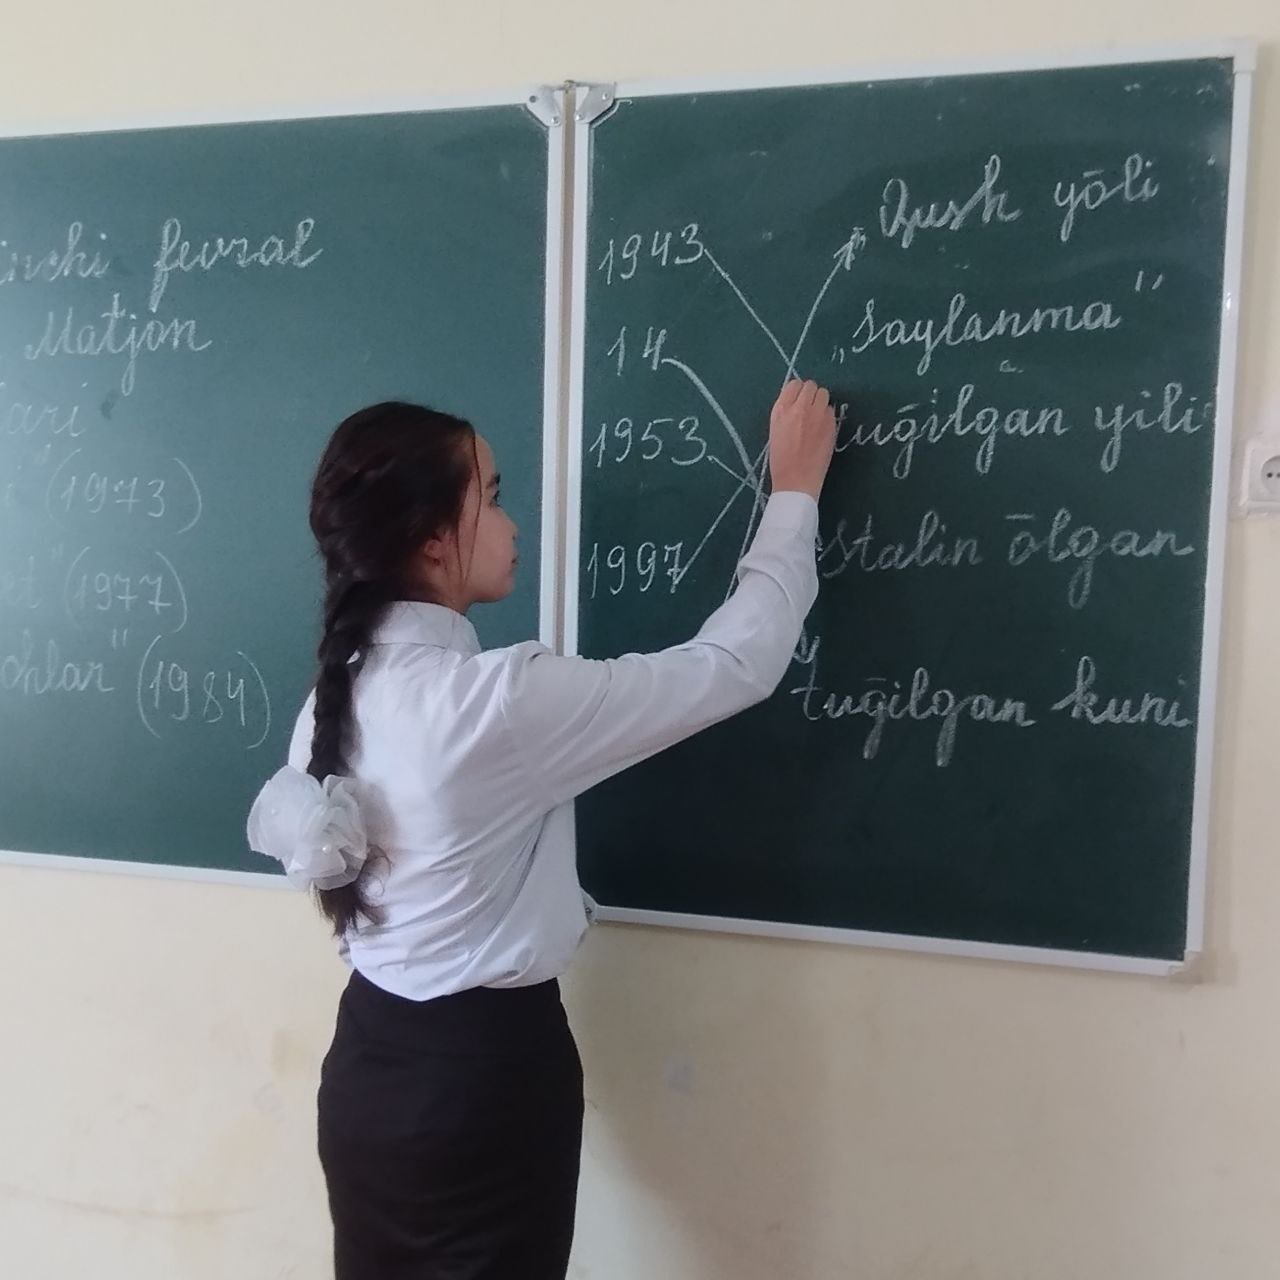 fevral
Matjon
(1973)
(1977)
" (1984)
1943
14
1953
1997
Qush yōli
„Saylanma"
tuḡilgan yili
Stalin ōlgan
tuḡilgan kuni